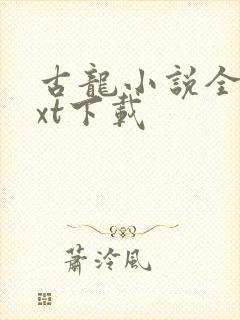 古龍小說全
xt下載
蕭泠風